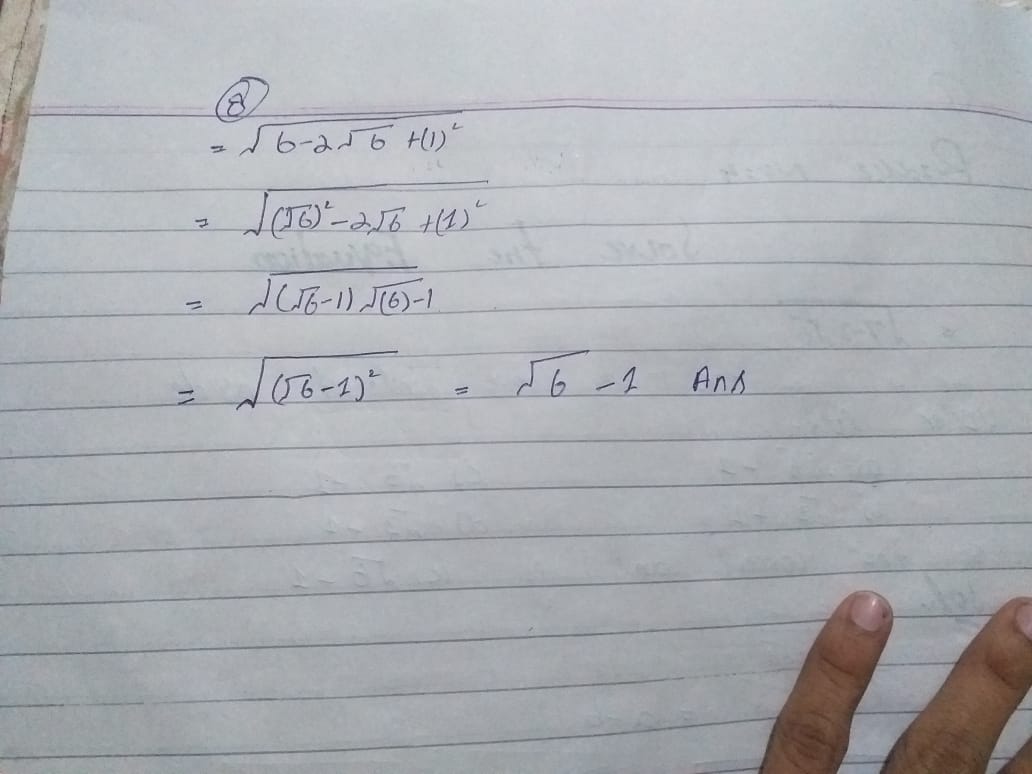 8
= √6-2√6 +(1)²
= √(√6)²-2√6 +(1)²
= √(√6-1) √(6)-1
= √(√6-1)² = √6 -1 Ans